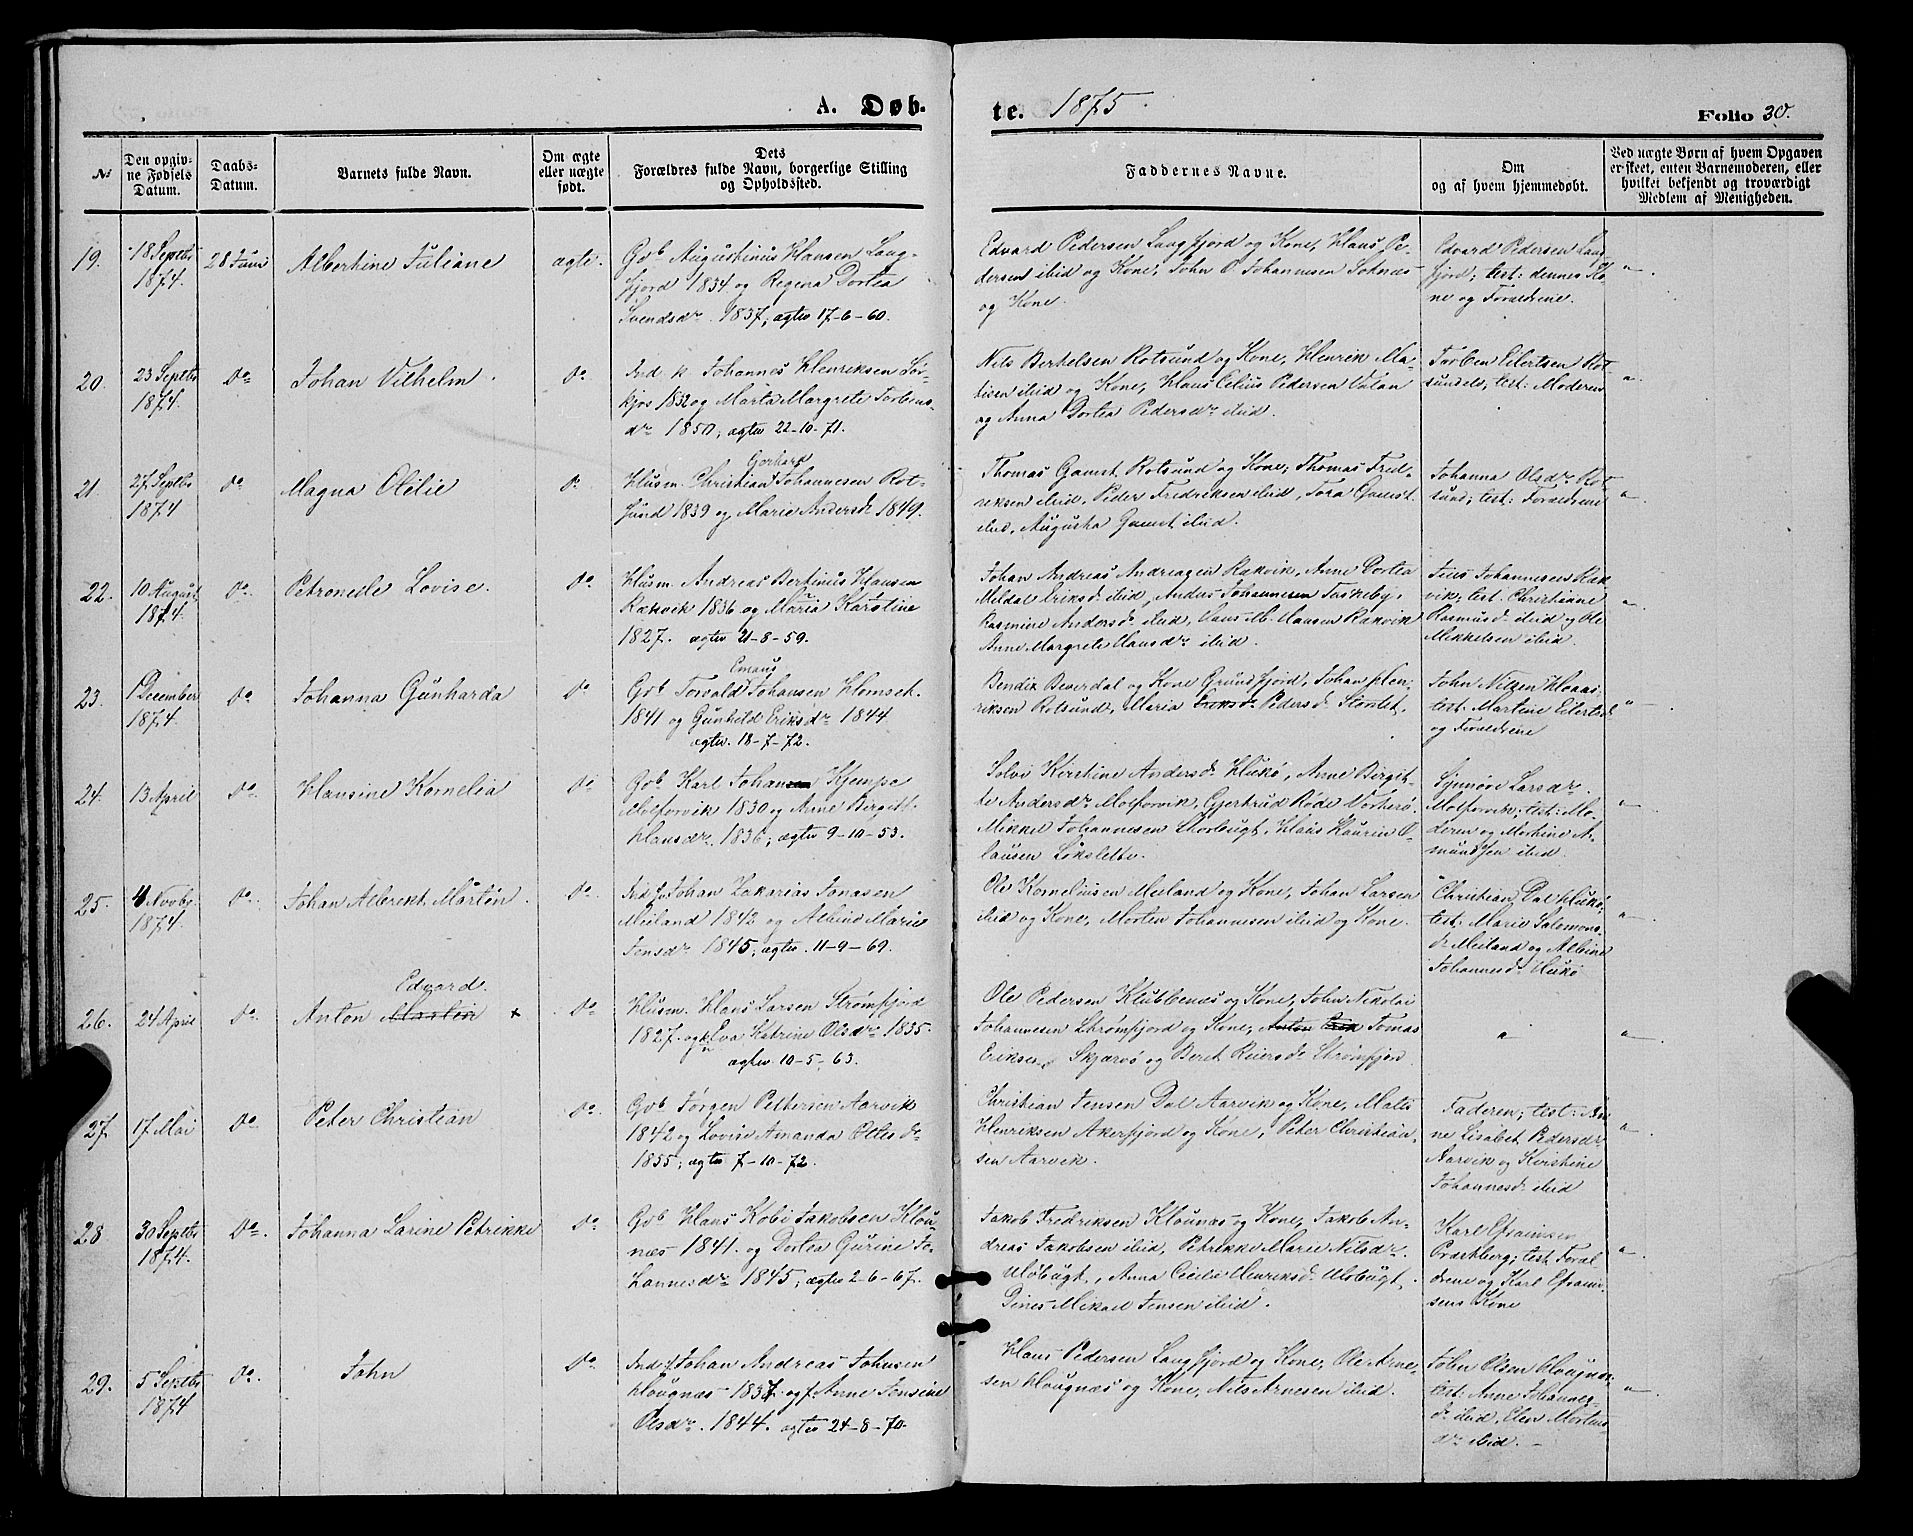 A. Døb-
te. 1875.
Folio 30.
№
Den opgiv-
ne Fødsels
Datum.
Daabs-
Datum.
Barnets fulde Navn.
Om ægte
eller uægte
født.
Dets
Forældres fulde Navn, borgerlige Stilling
og Opholdssted.
Faddernes Navne.
Om
og af hvem hjemmedøbt.
Ved uægte Børn af hvem Opgaven
er skeet, enten Barnemoderen, eller
hvilket bekjendt og troværdigt
Medlem af Menigheden.
19.
18 Septbr
1874.
28 Juni
Albertine Juliane
ægte.
Gbb Augustinus Hansen Lang-
fjord 1834 og Regina Dortea
Svendsdr. 1837, ægtev 17-6-60.
Edvard Pedersen Langfjord og Kone, Hans Pe-
dersen ibid og Kone, John O Johannesen Soknæs
og Kone.
Edvard Pedersen Lang-
fjord; test: dennes Ko-
ne og Forældrene.
"
20.
23 Septbr
1874.
Do
Johan Vilhelm.
Do.
Ind. k. Johannes Henriksen Sør-
kjos 1832 og Marta Margrete Torbens-
dr 1850, ægtev 22-10-71.
Nils Berhelsen Rotsund og Kone, Henrik Ma-
tisen ibid og Kone, Hans Celius Pedersen
og Anna Dortea Pedersdr ibid.
Torben Eilertsen Rot-
sundelv, test: Moderen
"
21
27 Septbr
1874
Do
Magna Otilie
Do
Gerhard
Husm. Christian Johannesen Rot-
sund 1839 og Marie Andersdr 1849.
Thomas Gamst Rotsund og Kone, Thomas Fred-
riksen ibid, Peder Fredriksen ibid, Tora Gamst
ibid, Augusta Gamst ibid.
Johanna Olsdr Rot-
sund; test: Forældrene
"
22.
10 August
1874.
Do.
Petronelle Lovise.
Do.
Husm. Andreas Bertinus Hansen
Rakvik 1836 og Maria Karoline
1827. ægtev 21-8-59.
Johan Andreas Andreasen Rakvik, Anne Dortea
Meldal Eriksdr ibid, Anders Johannesen Taskeby,
Rasmine Andersdr ibid, Hans M. Hansen Rakvik
Anne Margrete Hansdr ibid.
Jens Johannesen Rak-
vik, test: Christianne
Rasmusdr ibid og Ole
Mikkelsen ibid.
"
23.
1 December
1874.
Do
Johanna Gunharda
Do
Emaus
Gbb Torvald Johansen Hamset
1841 og Gunhild Eriksdr 1844.
ægtev. 18-7-72.
Bendix Beverdal og Kone Grundfjord, Johan Hen-
riksen Rotsund, Maria Pedersdr Storslet.
John Nilsen
test: Martine Eilertsdr
og Forældrene
"
24.
13 April
Do.
Hansine Kornelia
Do
Gbb Karl Johan Kjempe
Molforvik 1830 og Anne Bergitt.
Hansdr. 1836, ægtev 9-10-53.
Solvi Kirstine Andersdr Hukø, Anne Birgit-
te Andersdr Molforvik, Gjertrud Røde Vorterø
Mikkel Johannesen Storbugt, Hans Laurin O-
lausen Løkslette.
Synnøve Larsdr.
Molforvik; test: Mo-
deren og Martine A-
mundsen ibid.
"
25.
4 Novbr
1874.
Do.
Johan Albrekt Mårtin
Do
Ind f. Johan Zakarias Jonasen
Meiland 1842 og Albine Marie
Jensdr. 1845, ægtev. 11-9-69.
Ole Korneliusen Meiland og Kone, Johan Larsen
ibid og Kone, Morten Johannesen ibid og Kone.
Christian Dal Hukø,
test: Marie Salomons-
dr Meiland og Albine
Johannesdr Hukø
"
26.
24 April
Do
Edvard.
Anton x
Do
Husm. Hans Larsen Strømfjord
1827. og Eva Katrine Olsdr 1835.
ægtev 10-5-63.
Ole Pedersen Klubbenæs og Kone, John Nikolai
Johannesen Strømfjord og Kone, Tomas
Eriksen Skjærvø og Beret Reiersdr Strømfjord
"
"
27.
17 Mai
Do.
Peter Christian
Do.
Gbb Jørgen Pettersen Aarvik
1842 og Lovise Amanda Ottesdr
1855; ægtev 7-10-72.
Christian Jensen Dal Aarvik og Kone, Matis
Henriksen Akerfjord og Kone, Peter Christian-
sen Aarvik.
Faderen; test: An-
ne Lisabet Pedersdr
Aarvik og Kirstine
Johannesdr ibid
"
28
30 Septbr
1874.
Do.
Johanna Larine Petrikke
Do.
Gbb Hans Kobi Jakobsen Klou-
næs 1841. og Dortea Gurine Jo-
hannesdr 1845, ægtev 2-6-67.
Jakob Fredriksen Klounæs og Kone, Jakob An-
dreas Jakobsen ibid, Petrikke Marie Nilsdr.
Uløbugt, Anna Cecilie Henriksdr Uløbugt.
Dines Mikael Jensen ibid.
Karl Efraimsen
test: Foræl-
drene og Karl Efraim-
sens Kone
"
29.
5 Septbr
1874
Do.
John
Do.
Ind f. Johan Andreas Johnsen
Hougnæs 1837 og f. Anne Jonsine
Olsdr. 1844. ægtev 24-8-70.
Hans Pedersen Langfjord og Kone, Ole Arne-
sen Hougnæs og Kone, Nils Arnesen ibid.
John Olsen Hougnæs.
test: Anne Johannes-
dr ibid, Elen Mortens-
dr ibid.
"